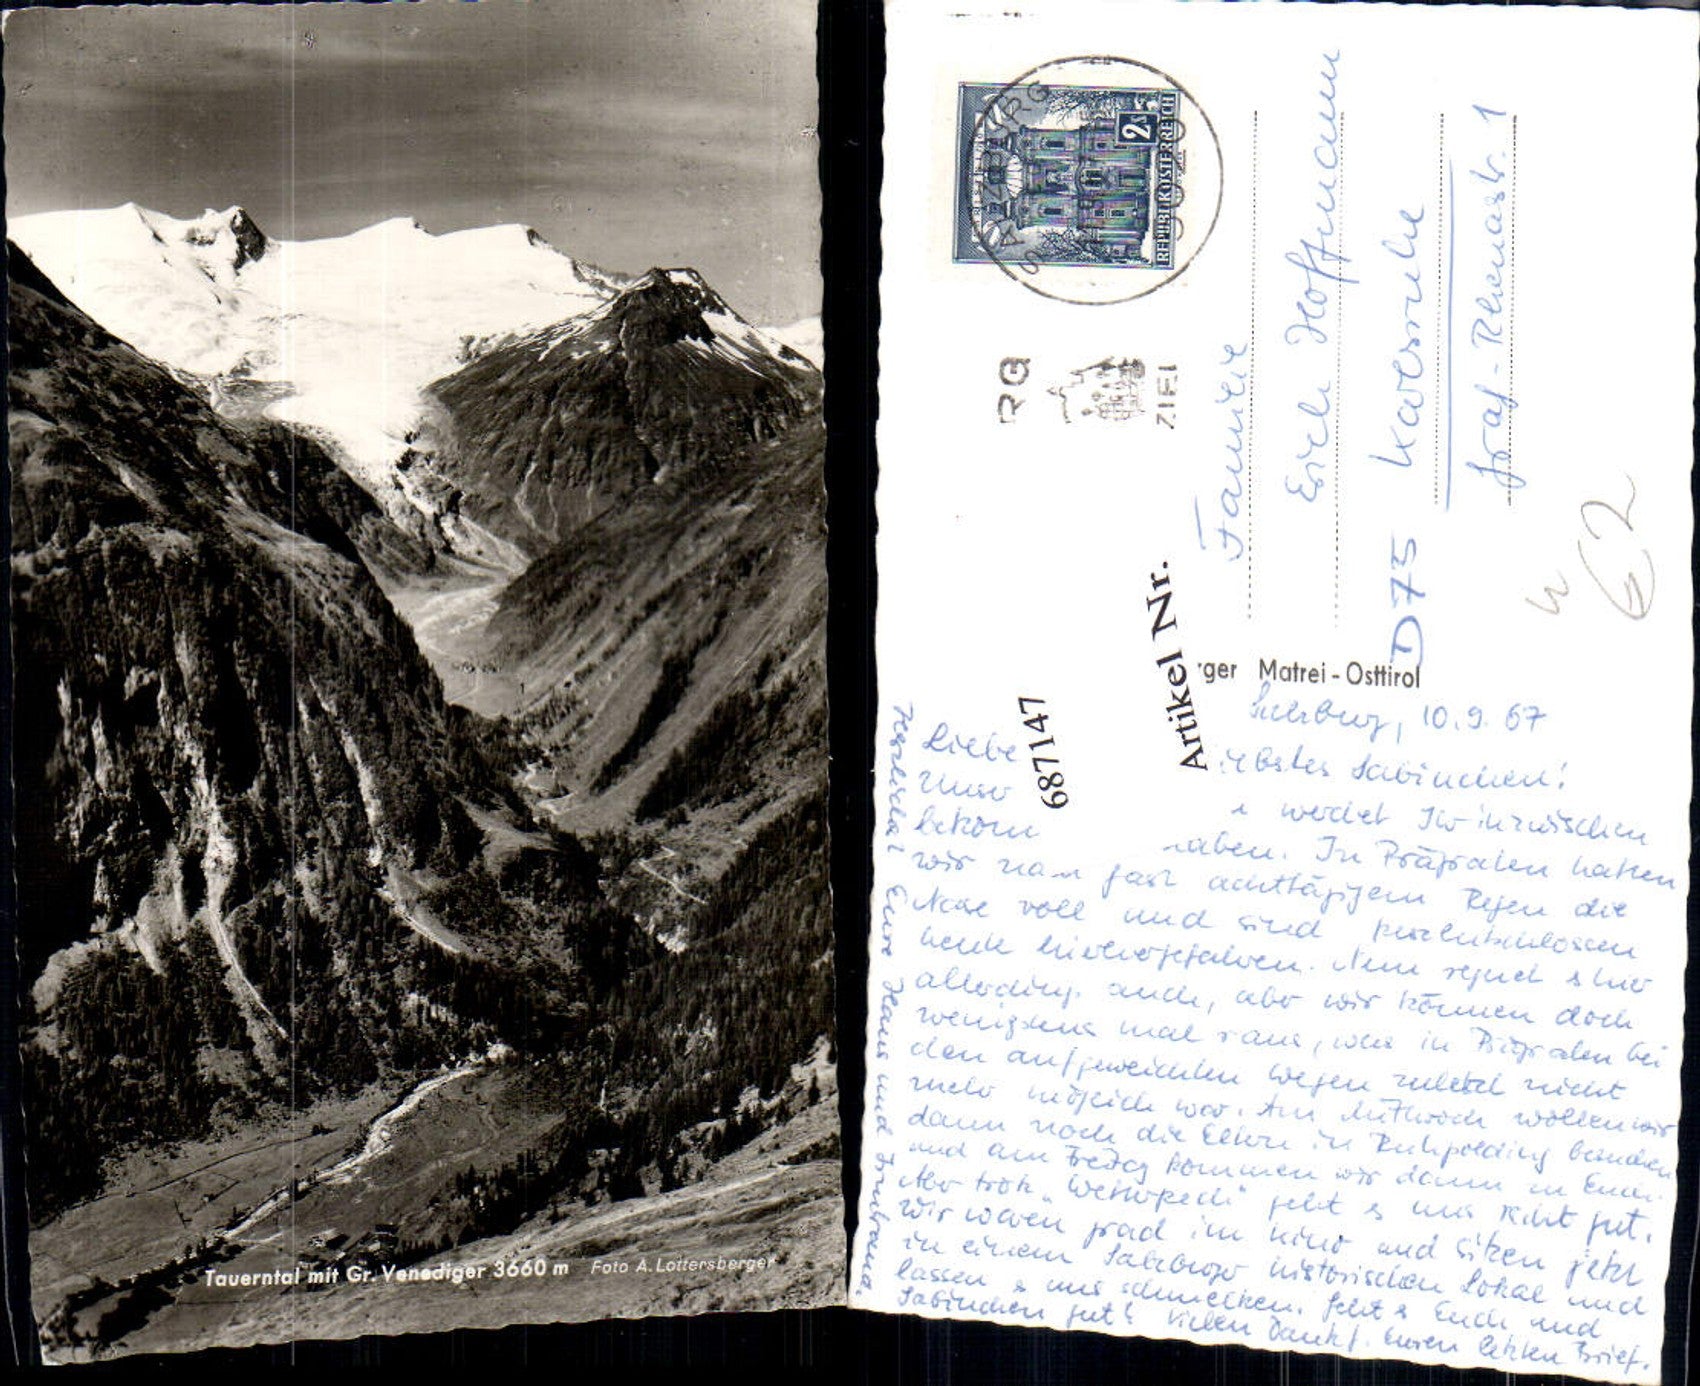 Tauerntal mit Gr. Venediger 3660 m Foto A. Lottersberger
SALZBURG
2s
REPUBLIK ÖSTERREICH
RG
ZIEL
Familie
Erich Hoffmann
D75 Karlsruhe
Graf-Rhenastr. 1
rger Matrei-Osttirol
Artikel Nr.
687147
Salzburg, 10.9.67
Liebe iebstes Sabinchen!
Unser werdet Ihr inzwischen
bekom haben. In Prägraten hatten
wir nach fast achttägigem Regen die
Nase voll und sind kurzentschlossen
heute hierhergefahren. Nun regnet es hier
allerdings auch, aber wir können doch
wenigstens mal raus, was in Prägraten bei
den aufgeweichten Wegen zuletzt nicht
mehr möglich war. Am Mittwoch wollen wir
dann noch die Eltern in Ruhpolding besuchen
und am Freitag kommen wir dann zu Euch.
Aber trotz "Wetterpech" geht es uns recht gut.
Wir waren grad im Kino und sitzen jetzt
in einem Salzburger historischen Lokal und
lassen es uns schmecken. Geht es Euch und
Sabinchen gut? Vielen Dank f. Euren letzten Brief.
Herzlichst Eure Hans und Irmtraud